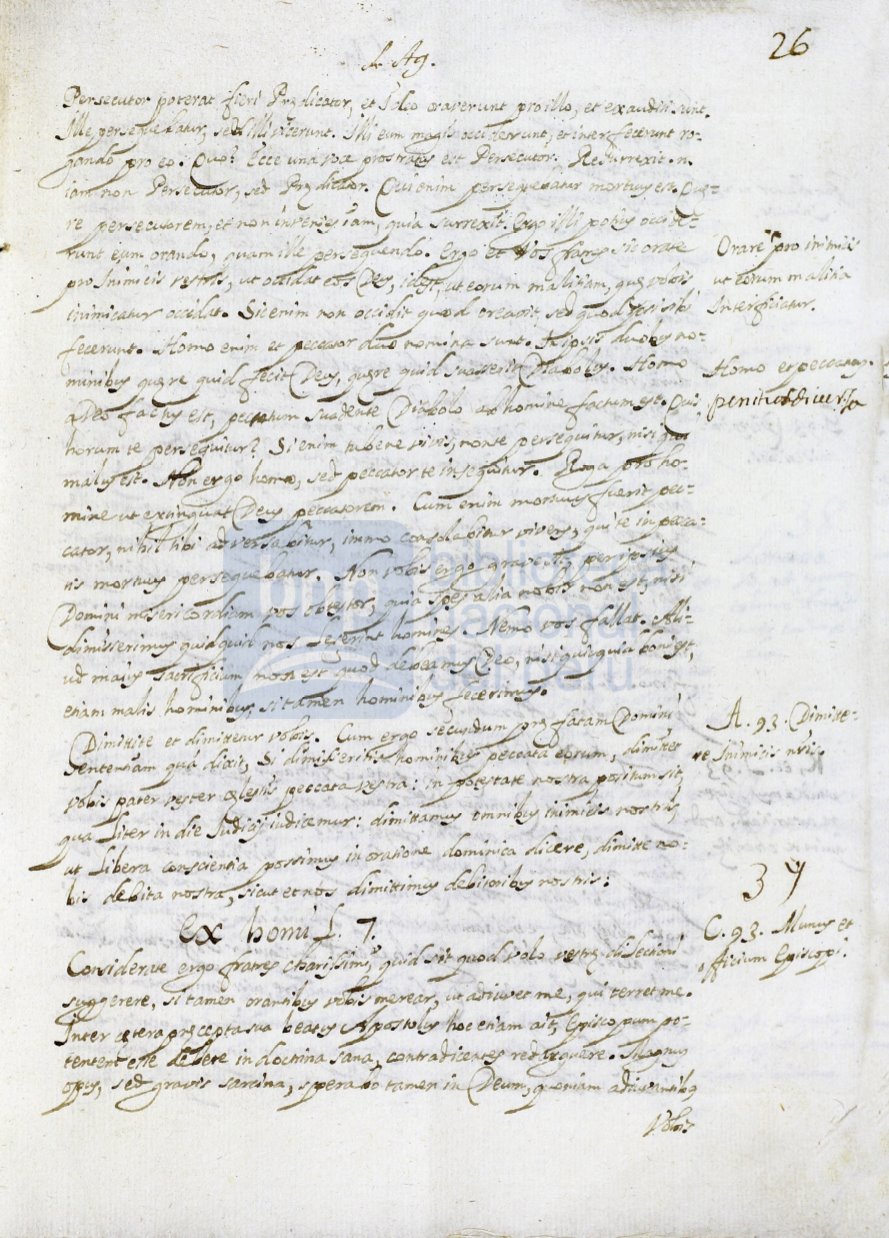 26
S. Ag.
Persecutor poterat fieri Prędicator, et Ideo oraverunt pro illo, et exauditi sunt.
Ille persequebatur, sed illi vicerunt. Illi eum magis occiderunt, et interfecerunt ro-
gando pro eo. Quo? Ecce una voce prostratus est Persecutor. Resurrexit
iam non Persecutor, sed Prędicator. Qui enim persequebatur mortuus est. Quę-
re persecutorem, et non invenies iam, quia surrexit. Ergo illi potius occide-
runt eum orando, quam ille persequendo. Ergo et Vos fratres sic orate
pro Inimicis vestris, ut occidat eos Deus, idest, ut eorum malitiam, quę vobis
inimicatur occidat. Sic enim non occidit quod creavit, sed quod sibi
fecerunt. Homo enim et peccator duo nomina sunt. In ipsis duobus no-
minibus quęre quid fecit Deus, quęre quid suaserit Diabolus. Homo
a Deo factus est, peccatum suadente Diabolo ab homine factum est. Quis
horum te persequitur? Si enim tu bene vivis, non te persequitur, nisi qui
malus est. Non ergo homo, sed peccator te insequitur. Roga pro ho-
mine ut extinguat Deus peccatorem. Cum enim mortuus fuerit pec-
cator, nihil tibi adversabitur, immo consolabitur vivens, qui te in pecca-
tis mortuus persequebatur. Non vobis ergo grave sit, per ipsius
Domini misericordiam vos obtestor, quia spes alia nobis non est, nisi
dimisserimus quidquid nos leserint homines. Nemo vos fallat. Ali-
ud maius sacrificium non est quod debeamus Deo, nisi quisquis boni est,
etiam malis hominibus, si tamen hominibus fecerimus.
Dimittite et dimittetur vobis. Cum ergo secundum pręfatam Domini
sententiam qua dixit, Si dimisseritis hominibus peccata eorum, dimittet
vobis pater vester cęlestis peccata vestra: in potestate nostra positum sit,
qualiter in die Iudicij iudicemur: dimittamus omnibus inimicis nostris,
ut Libera conscientia possimus in oratione dominica dicere, dimitte no-
bis debita nostra, sicut et nos dimittimus debitoribus nostris:
Ex homil. 7.
Considerate ergo fratres charissimi, quid sit quod volo vestrę dilectioni
suggerere, si tamen orantibus vobis merear, ut adiuvet me, qui terret me.
Inter cętera pręcepta sua beatus Apostolus hoc etiam ait, Episcopum po-
tentem esse debere in doctrina sana, contradicentes redarguere. Magnum
opus, sed gravis sarcina, sperabo tamen in Deum, quoniam adiuvantibus
Vobis
Orare pro inimicis
ut eorum malitia
Interficiatur.
Homo et peccator
penitus diversa
A. 93. Dimitte-
re Inimicis nris.
37
C. 93. Munus et
officium Episcopi.
biblioteca
nacional
del perú